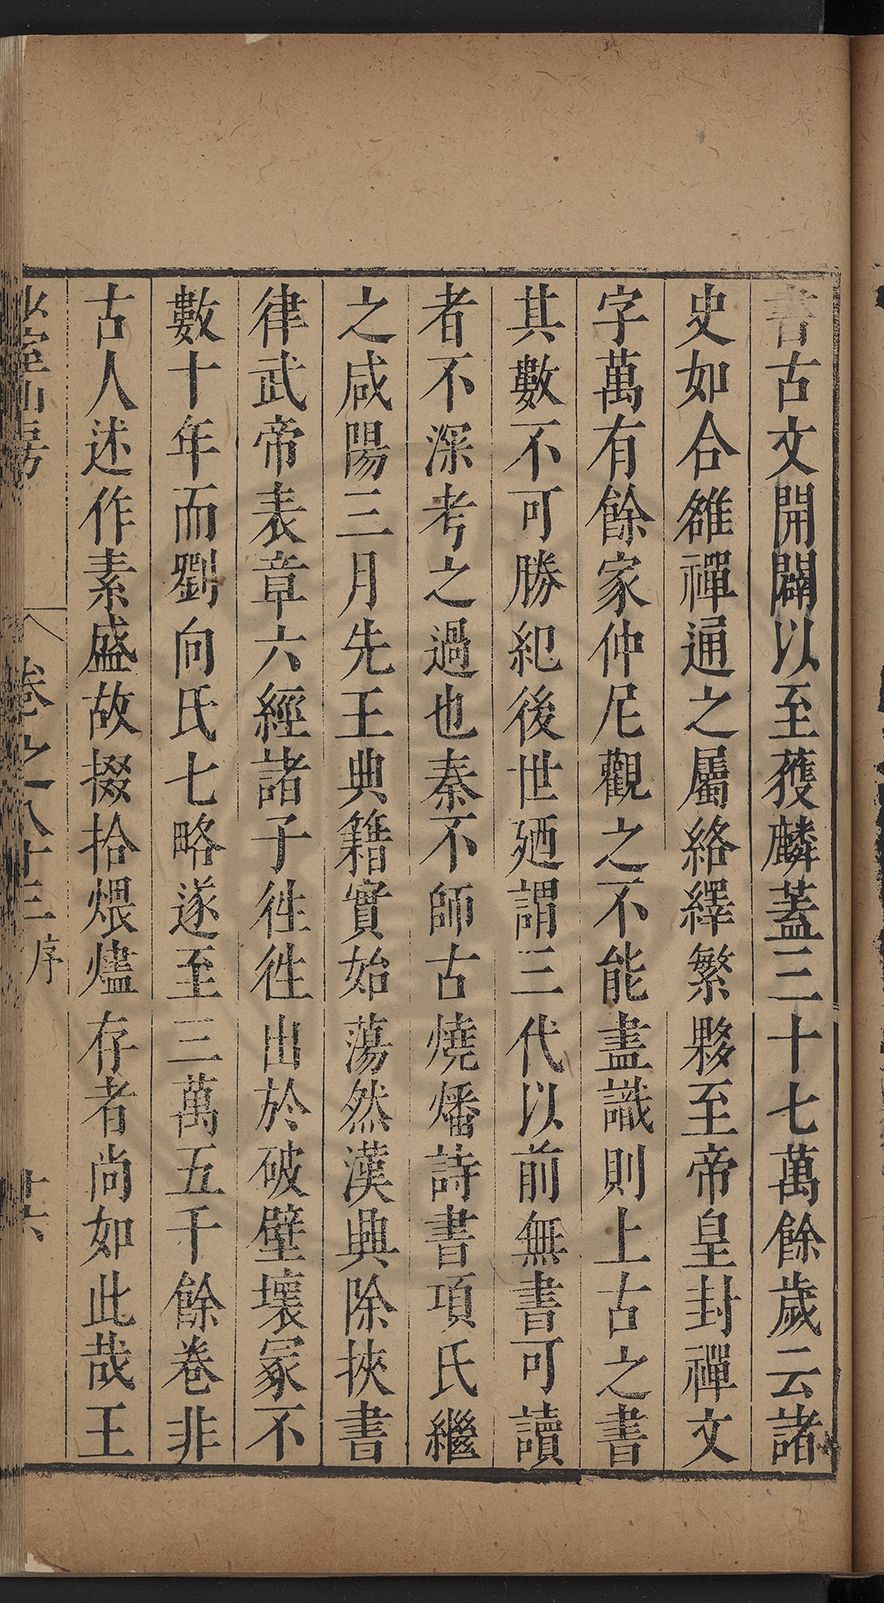 書古文開闢以至獲麟蓋三十七萬餘歲云諸
史如合雒禪通之屬絡繹繁夥至帝皇封禪文
字萬有餘家仲尼觀之不能盡識則上古之書
其數不可勝紀後世廼謂三代以前無書可讀
者不深考之過也秦不師古燒燔詩書項氏繼
之咸陽三月先王典籍實始蕩然漢興除挾書
律武帝表章六經諸子徃徃出於破壁壞冡不
數十年而劉向氏七略遂至三萬五千餘卷非
古人述作素盛故掇拾煨燼存者尚如此哉王
室山房
卷之八十三 序
十六